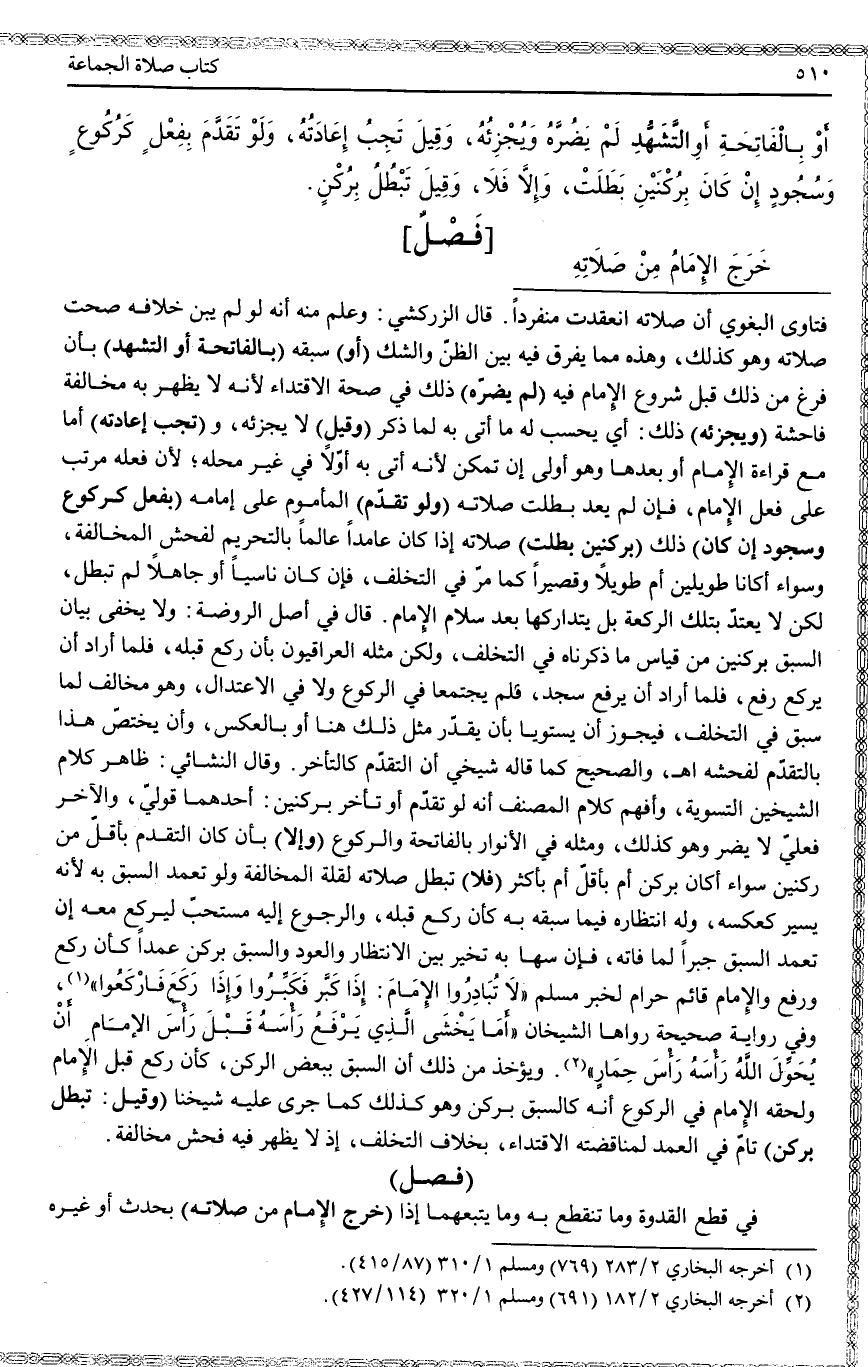 ٥١٠ كتاب صلاة الجماعة
أَوْ بِالْفَاتِحَةِ أَوِ التَّشَهُّدِ لَمْ يَضُرَّهُ وَيُجْزِئُهُ، وَقِيلَ تَجِبُ إِعَادَتُهُ، وَلَوْ تَقَدَّمَ بِفِعْلٍ كَرُكُوعٍ
وَسُجُودٍ إِنْ كَانَ بِرُكْنَيْنِ بَطَلَتْ، وَإِلَّا فَلَا، وَقِيلَ تَبْطُلُ بِرُكْنٍ.
[فَصْلٌ]
خَرَجَ الإِمَامُ مِنْ صَلَاتِهِ
فتاوى البغوي أن صلاته انعقدت منفرداً. قال الزركشي: وعلم منه أنه لو لم يبن خلافه صحت
صلاته وهو كذلك، وهذه مما يفرق فيه بين الظنّ والشك (أو) سبقه (بالفاتحة أو التشهد) بأن
فرغ من ذلك قبل شروع الإمام فيه (لم يضرّه) ذلك في صحة الاقتداء لأنه لا يظهر به مخالفة
فاحشة (ويجزئه) ذلك: أي يحسب له ما أتى به لما ذكر (وقيل) لا يجزئه، و (تجب إعادته) أما
مع قراءة الإمام أو بعدها وهو أولى إن تمكن لأنه أتى به أوّلاً في غير محله؛ لأن فعله مرتب
على فعل الإمام، فإن لم يعد بطلت صلاته (ولو تقدّم) المأموم على إمامه (بفعل كركوع
وسجود إن كان) ذلك (بركنين بطلت) صلاته إذا كان عامداً عالماً بالتحريم لفحش المخالفة،
وسواء أكانا طويلين أم طويلاً وقصيراً كما مرّ في التخلف، فإن كان ناسياً أو جاهلاً لم تبطل،
لكن لا يعتدّ بتلك الركعة بل يتداركها بعد سلام الإمام. قال في أصل الروضة: ولا يخفى بيان
السبق بركنين من قياس ما ذكرناه في التخلف، ولكن مثله العراقيون بأن ركع قبله، فلما أراد أن
يركع رفع، فلما أراد أن يرفع سجد، فلم يجتمعا في الركوع ولا في الاعتدال، وهو مخالف لما
سبق في التخلف، فيجوز أن يستويا بأن يقدّر مثل ذلك هنا أو بالعكس، وأن يختصّ هذا
بالتقدّم لفحشه اهـ، والصحيح كما قاله شيخي أن التقدّم كالتأخر. وقال النشائي: ظاهر كلام
الشيخين التسوية، وأفهم كلام المصنف أنه لو تقدّم أو تأخر بركنين: أحدهما قوليّ، والآخر
فعليّ لا يضر وهو كذلك، ومثله في الأنوار بالفاتحة والركوع (وإلا) بأن كان التقدم بأقلّ من
ركنين سواء أكان بركن أم بأقلّ أم بأكثر (فلا) تبطل صلاته لقلة المخالفة ولو تعمد السبق به لأنه
يسير كعكسه، وله انتظاره فيما سبقه به كأن ركع قبله، والرجوع إليه مستحبّ ليركع معه إن
تعمد السبق جبراً لما فاته، فإن سها به تخير بين الانتظار والعود والسبق بركن عمداً كأن ركع
ورفع والإمام قائم حرام لخبر مسلم «لَا تُبَادِرُوا الإِمَامَ: إِذَا كَبَّر فَكَبِّرُوا وَإِذَا رَكَعَ فَارْكَعُوا»(١)،
وفي رواية صحيحة رواها الشيخان «أَمَا يَخْشَى الَّذِي يَرْفَعُ رَأْسَهُ قَبْلَ رَأْسِ الإِمَامِ أَنْ
يُحَوِّلَ اللَّهُ رَأْسَهُ رَأْسَ حِمَارٍ»(٢). ويؤخذ من ذلك أن السبق ببعض الركن، كأن ركع قبل الإمام
ولحقه الإمام في الركوع أنه كالسبق بركن وهو كذلك كما جرى عليه شيخنا (وقيل: تبطل
بركن) تامّ في العمد لمناقضته الاقتداء، بخلاف التخلف، إذ لا يظهر فيه فحش مخالفة.
(فصل)
في قطع القدوة وما تنقطع به وما يتبعهما إذا (خرج الإمام من صلاته) بحدث أو غيره
(١) أخرجه البخاري ٢٨٣/٢ (٧٦٩) ومسلم ٣١٠/١ (٤١٥/٨٧).
(٢) أخرجه البخاري ١٨٢/٢ (٦٩١) ومسلم ٣٢٠/١ (٤٢٧/١١٤).